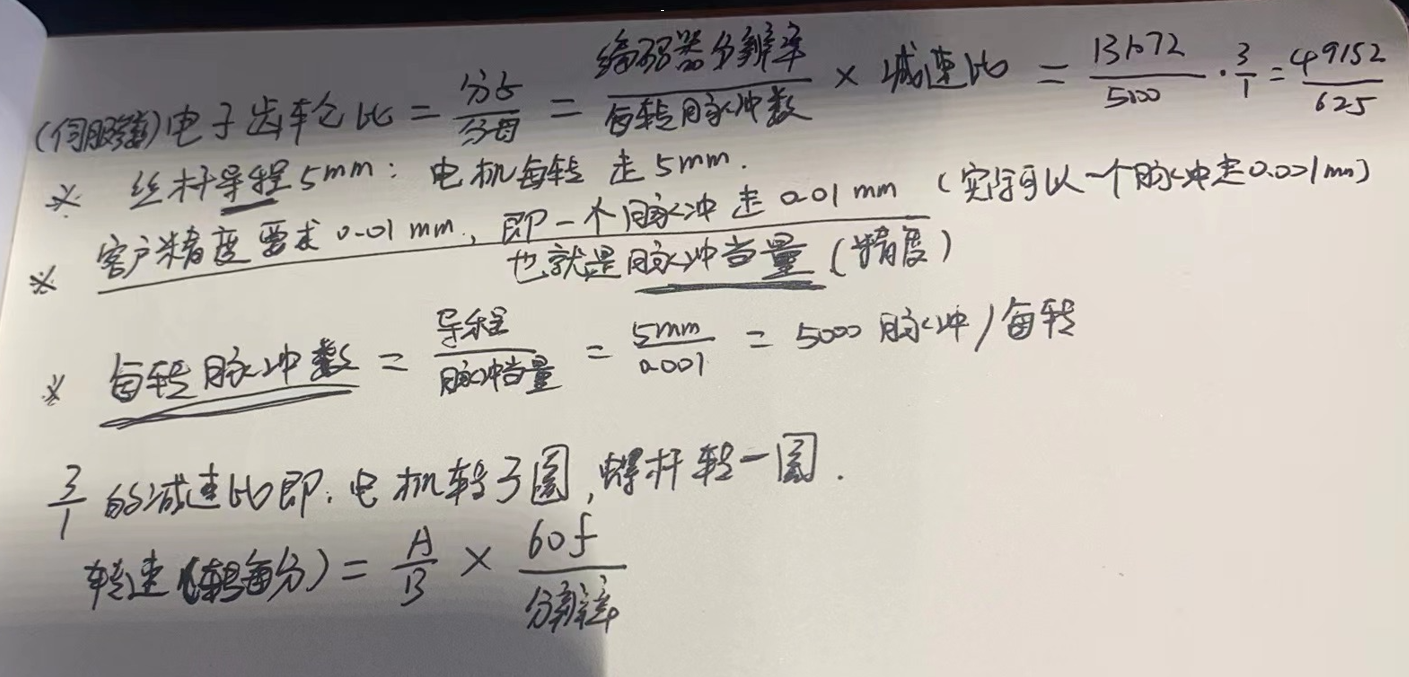 (伺服参数) 电子齿轮比 = 分子/分母 = 编码器分辨率/每转脉冲数 × 减速比 = 131072/5000 · 3/1 = 49152/625
※ 丝杆导程5mm: 电机每转 走5mm.
※ 客户精度要求 0.01mm, 即一个脉冲走0.01mm (实际可以一个脉冲走0.001mm)
也就是脉冲当量 (精度)
※ 每转脉冲数 = 导程/脉冲当量 = 5mm/0.001 = 5000 脉冲/每转
3/1 的减速比即: 电机转3圈, 螺杆转一圈.
转速 (转每分) = A/B × 60f/分辨率